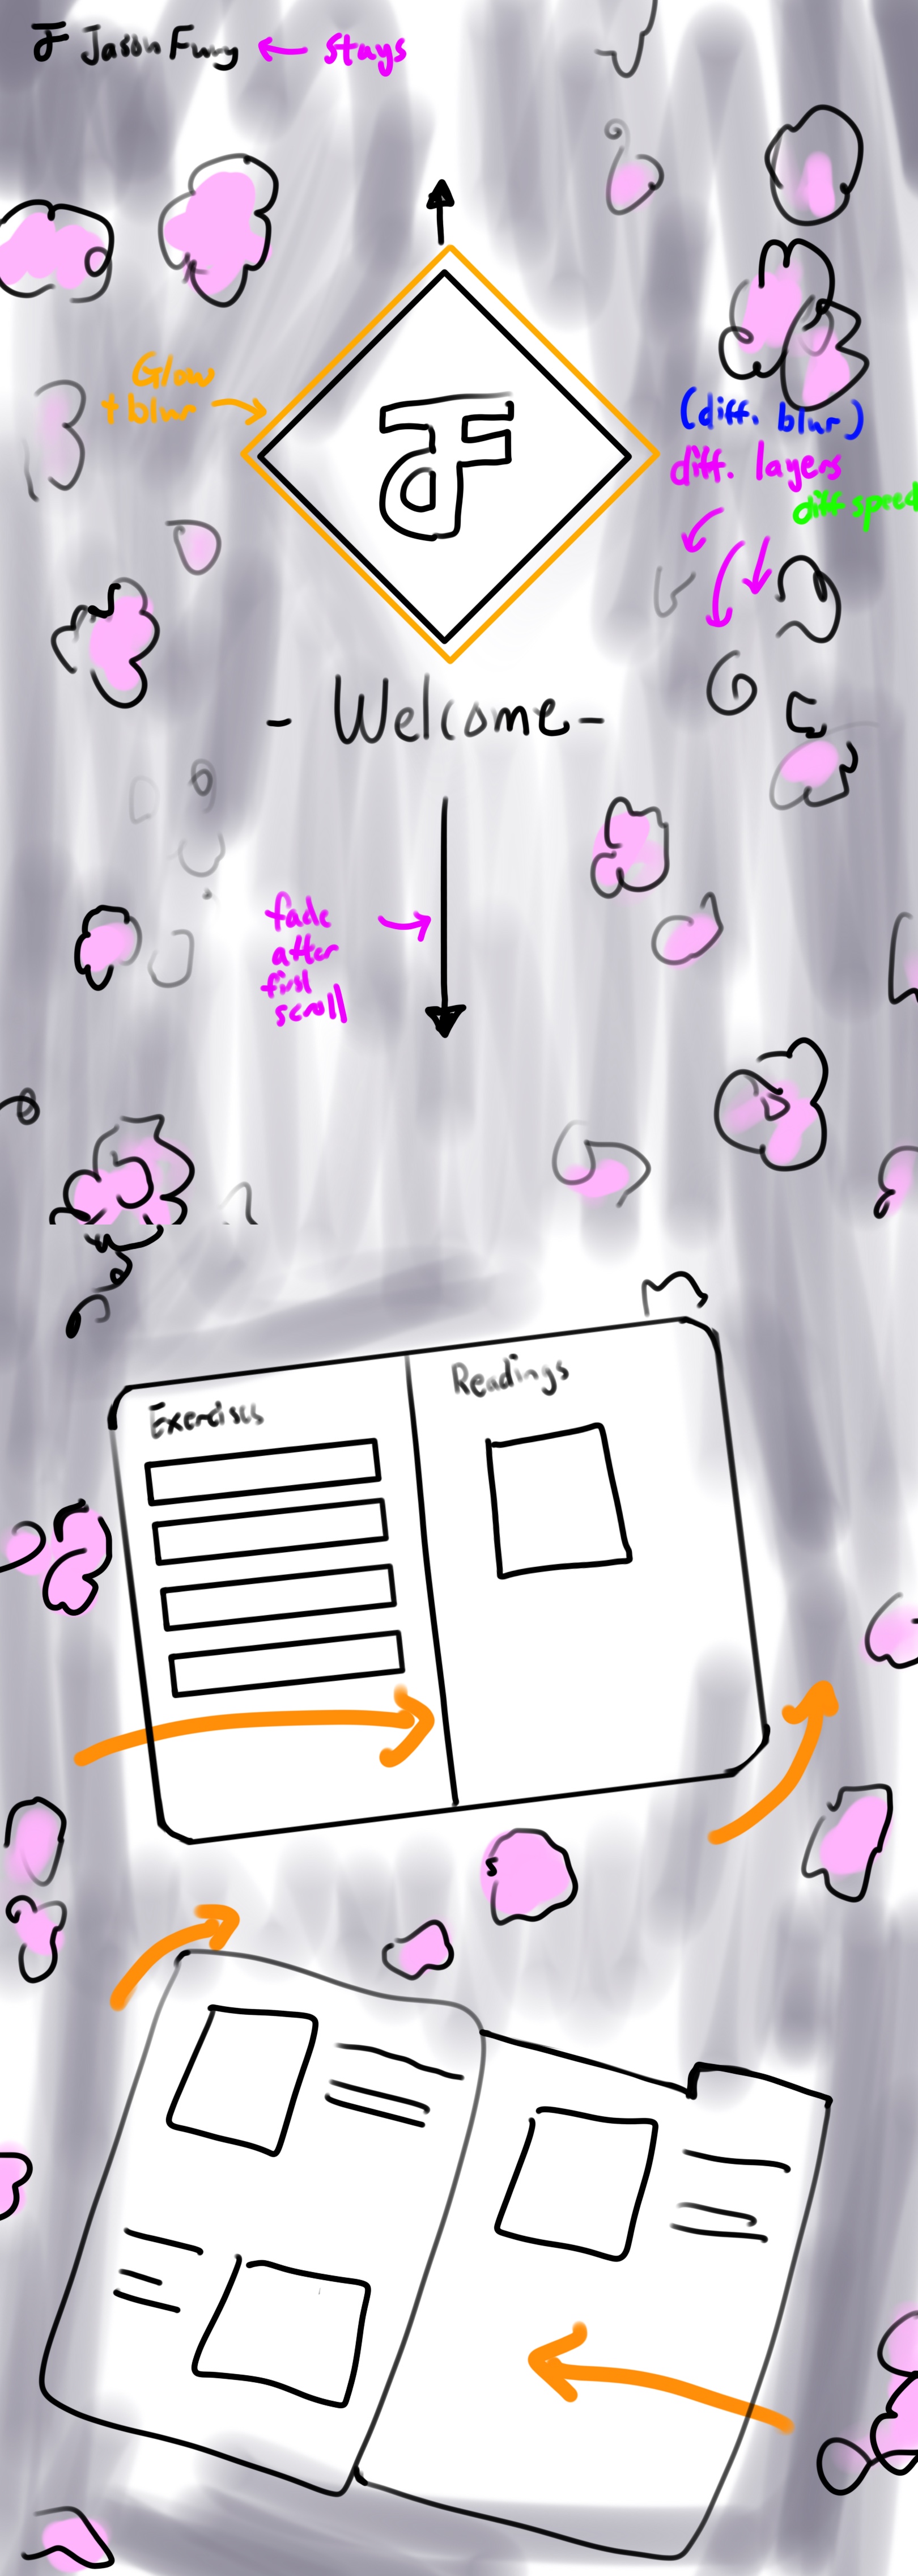 JF Jason Fury ← stays
Glow
+ blur
JF
(diff. blur)
diff. layers
diff speed
- Welcome -
fade
after
first
scroll
Exercises
Readings